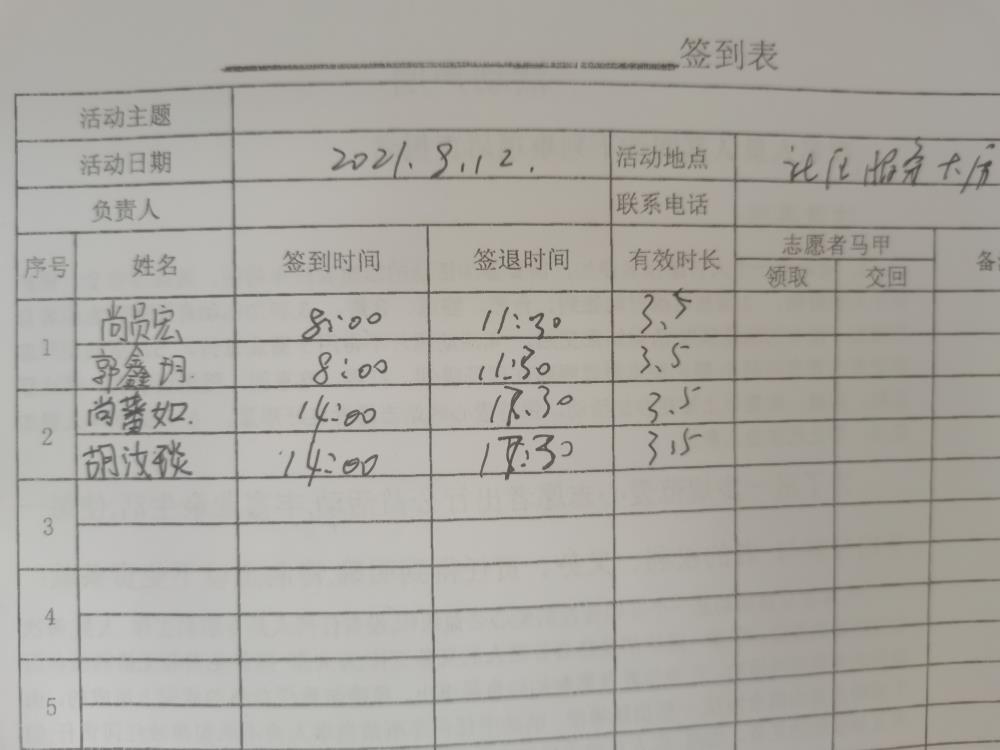 签到表
活动主题
活动日期 2021.9.12. 活动地点 社区服务大厅
负责人 联系电话
序号 姓名 签到时间 签退时间 有效时长 志愿者马甲 备
领取 交回
1 尚员宏 8:00 11:30 3.5
郭鑫玥 8:00 11:30 3.5
2 尚蕃如. 14:00 17.30 3.5
胡汝琰 14:00 17:30 3.5
3
4
5